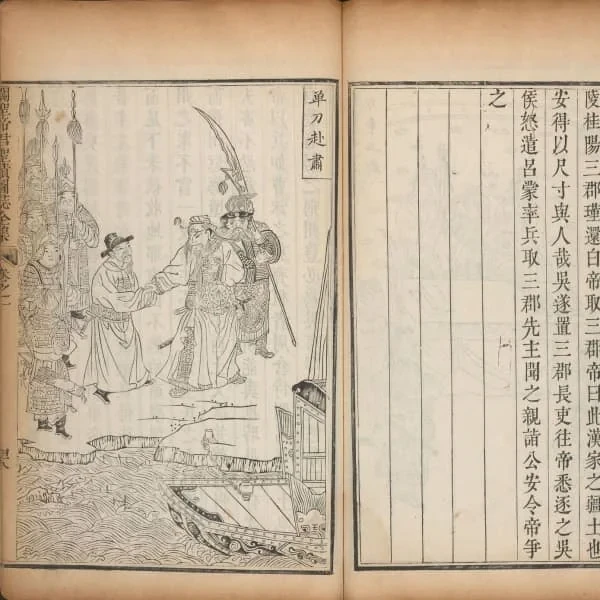 陵桂陽三郡瑾還白帝取三郡帝曰此漢家之疆土也
安得以尺寸與人哉吳遂置三郡長吏往帝悉逐之吳
侯怒遣呂蒙率兵取三郡先主聞之親詣公安令帝爭
之
单刀赴肅
關聖帝君聖蹟圖誌全集 卷之一